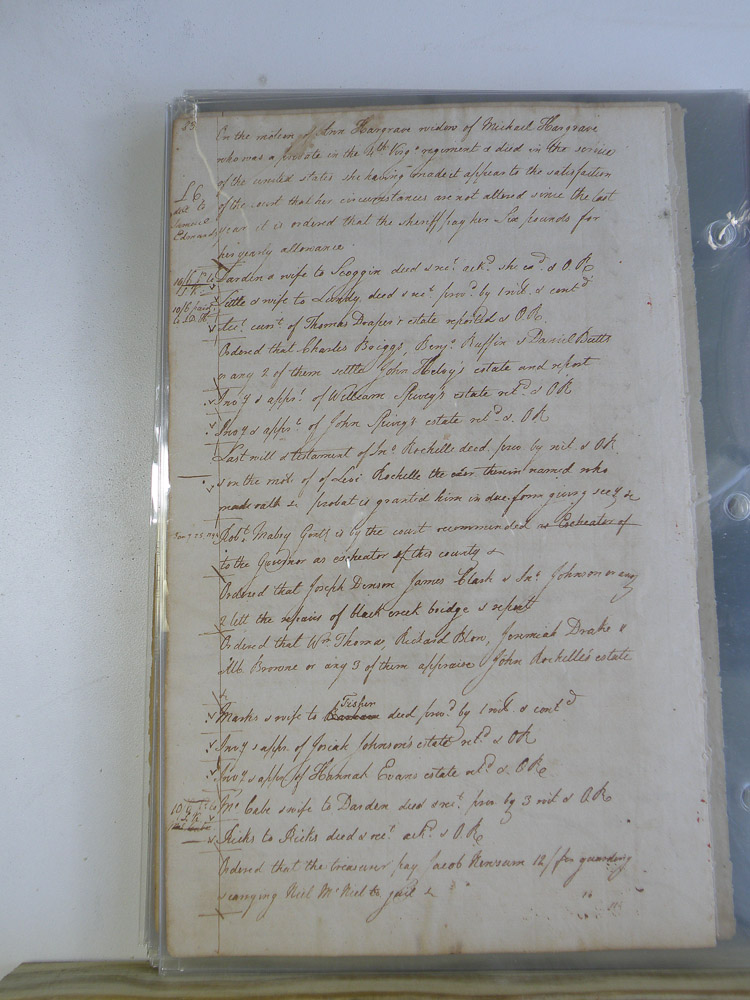 83
On the motion of Ann Hargrave widow of Michael Hargrave
who was a private in the 4th Virga regiment & died in the service
of the united states she having made it appear to the satisfaction
£6
of the court that her circumstances are not altered since the last
cert to
Samuel
Edmunds
year it is ordered that the sheriff pay her Six pounds for
her yearly allowance
Darden & wife to Scoggin deed & rect. ackd. she exd. & O.R.
Little & wife to Lundy deed & rect. provd. by 1 wit. & contd
10/6 paid
to S.K.
Acct. currt. of Thomas Draper's estate reported & O.R.
Ordered that Charles Briggs, Benja. Ruffin & Daniel Butts
or any 2 of them settle John Helvy's estate and report
Invy & apprt. of William Spivey's estate retd. & OR
Invy & apprt. of John Spivey's estate retd. & OR
Last will & testament of Jno. Rochelle deced. prov by wit. & OR
& on the moti of of Levi Rochelle the exor therein named who
made oath & probat is granted him in due form giving secy &c
Robt. Mabry Gent is by the court recommended as Escheator of
to the Governor as escheator of this county &
Ordered that Joseph Denson James Clark & Jno. Johnson or any
2 lett the repairs of black creek bridge & report
Ordered that Wm. Thomas, Richard Blow, Jeremiah Drake &
Alb. Browne or any 3 of them appraise John Rochelle's estate
&
Fisher
Marks & wife to deed provd by 1 wit. & contd
Invy & appr. of Josiah Johnson's estate retd. & OR
Invy & appr. of Hannah Evans estate retd. & O.R.
Jno. Cabe & wife to Darden deed & rect. prov by 3 wit & O.R.
Ricks to Ricks deed & rect. ackd. & O.R.
Ordered that the treasurer pay Jacob Newsum 12/ for guarding
& carrying Neel McNeel to jail &